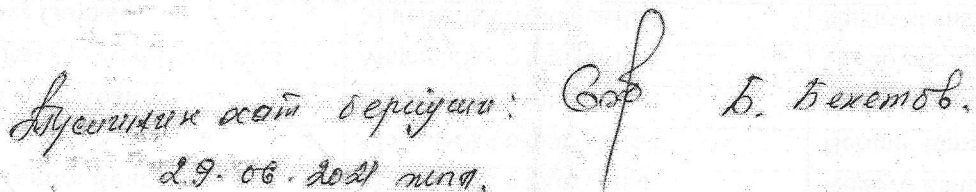 Түсиник хат бериўши: Б. Бекетов.
29.06.2021 жыл.